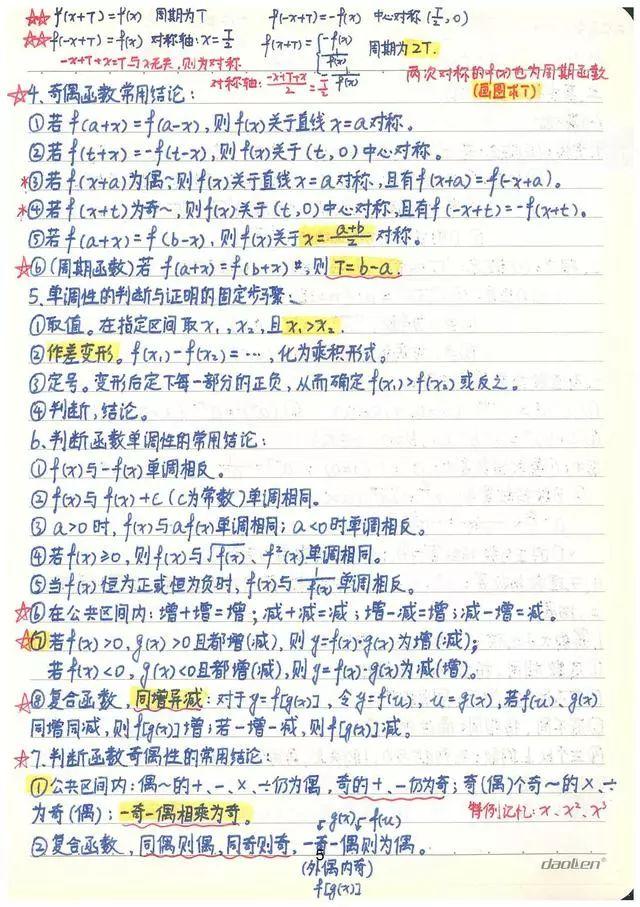 ☆☆ f(x+T)=f(x) 周期为T f(-x+T)=-f(x) 中心对称 (T/2,0)
☆☆ f(-x+T)=f(x) 对称轴:x=T/2 f(x+T)={-f(x) 1/f(x) -1/f(x) 周期为2T.
-x+T+x=T与x无关,则为对称
对称轴: (-x+T+x)/2=T/2 两次对称的f(x)也为周期函数
(画图求T)
☆4、奇偶函数常用结论:
①若f(a+x)=f(a-x),则f(x)关于直线x=a对称。
②若f(t+x)=-f(t-x),则f(x)关于(t,0)中心对称。
*③若f(x+a)为偶~则f(x)关于直线x=a对称,且有f(x+a)=f(-x+a)。
*④若f(x+t)为奇~,则f(x)关于(t,0)中心对称,且有f(-x+t)=-f(x+t)。
⑤若f(a+x)=f(b-x),则f(x)关于x=(a+b)/2对称。
☆⑥(周期函数)若f(a+x)=f(b+x),则T=b-a.
5、单调性的判断与证明的固定步骤:
①取值。在指定区间取x₁,x₂,且x₁>x₂.
②作差变形。f(x₁)-f(x₂)=…,化为乘积形式。
③定号。变形后定下每一部分的正负,从而确定f(x₁)>f(x₂)或反之。
④判断,结论。
6、判断函数单调性的常用结论:
①f(x)与-f(x)单调相反。
②f(x)与f(x)+c(c为常数)单调相同。
③a>0时,f(x)与af(x)单调相同;a<0时单调相反。
④若f(x)≥0,则f(x)与√f(x)、f²(x)单调相同。
⑤当f(x)恒为正或恒为负时,f(x)与1/f(x)单调相反。
☆⑥在公共区间内:增+增=增;减+减=减;增-减=增;减-增=减。
☆⑦若f(x)>0,g(x)>0且都增(减),则y=f(x)·g(x)为增(减);
若f(x)<0,g(x)<0且都增(减),则y=f(x)·g(x)为减(增)。
☆⑧复合函数,同增异减:对于y=f[g(x)],令y=f(u),u=g(x),若f(u)、g(x)
同增同减,则f[g(x)]增;若一增一减,则f[g(x)]减。
☆7、判断函数奇偶性的常用结论:
①公共区间内:偶~的+、-、×、÷仍为偶,奇的+、-仍为奇;奇(偶)个奇~的×、÷
为奇(偶);一奇一偶相乘为奇。 特例记忆:x、x²、x³
g(x) f(u)
②复合函数,同偶则偶,同奇则奇,一奇一偶则为偶。
5
(外偶内奇) daolien®
f[g(x)]